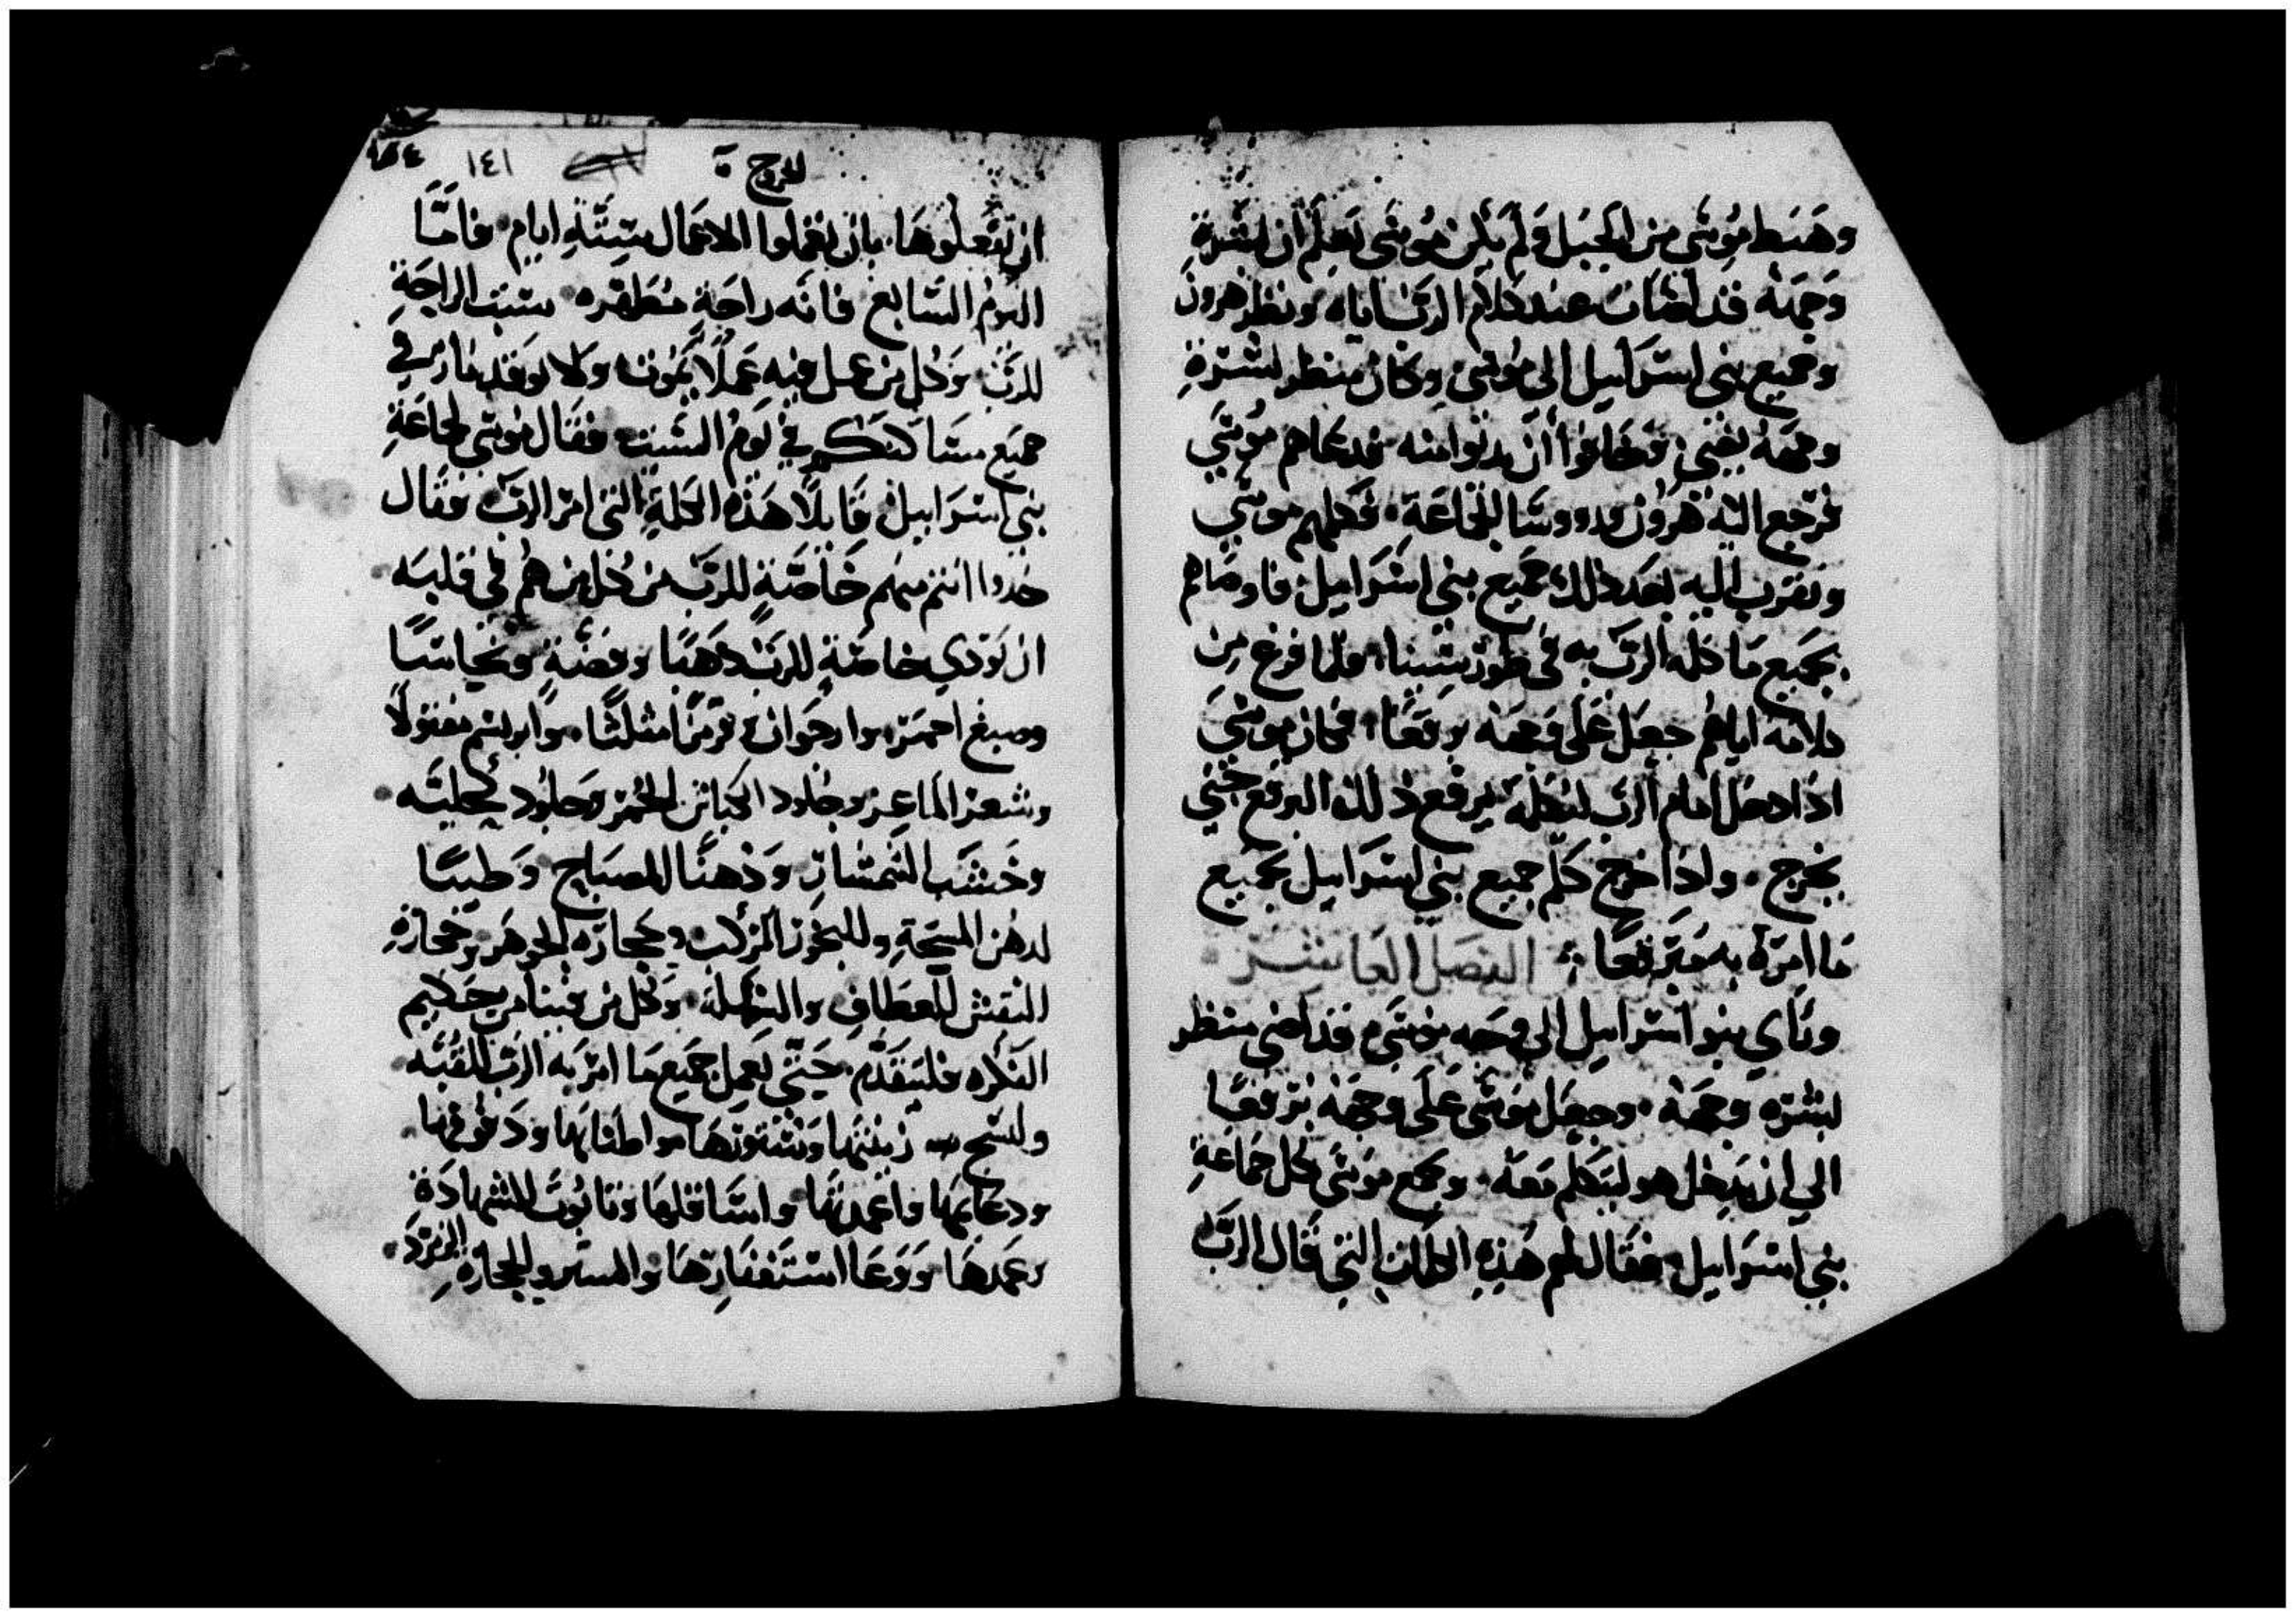 وهبط موسى من الجبل ولم يكن موسى يعلم ان بشرة
وجهه قد اضات عند كلام الرب اياه ونظر هرون
وجميع بني اسرايل الى موسى وكان منظر بشرة
وجهه يضي وخافوا أن يدنوا منه فدعاهم موسى
فرجع اليه هرون وروسا الجماعة فكلمهم موسى
وتقرب اليه بعد ذلك جميع بني اسرايل فاوصاهم
بجميع ما كلمه الرب به في طور سينا ولما فرغ من
كلامه اياهم جعل على وجهه برقعا فكان موسى
اذا دخل امام الرب ليكلمه يرفع ذلك البرقع حتى
يخرج واذا خرج كلم جميع بني اسرايل بجميع
ما امره به متبرقعا الفصل العاشر
وراي بنو اسرايل الى وجه موسى قد اضى منظر
بشره وجهه وجعل موسى على وجهه برقعا
الي ان يدخل هو ليتكلم معه وجمع موسى كل جماعة
بني اسرايل فقال لهم هذه الكلمات التي قال الرب
الخروج ١٤١
ان تفعلوها بان تعملوا الاعمال ستة ايام فاما
اليوم السابع فانه راحة مطهره سبت الراحة
للرب وكل من عمل فيه عملا يموت ولا توقد نار في
جميع مساكنكم في يوم السبت فقال موسى لجماعة
بني اسرايل قايلا هذه الكلمة التي امر الرب فقال
خدوا انتم منهم خاصة للرب من كل من هم في قلبه
ان يودي خاصة للرب دهبا وفضة ونحاسا
وصبغ احمر وارجوان قرمزا مثلثا وابريسم مغزولا
وشعر الماعز وجلود الكباش الحمر وجلود كحليه
وخشب الشمشار ودهنا للمصباح وطيبا
لدهن المسحة وللبخور المركب وحجاره الجوهر وحجارة
النقش للعطاف والنكلة وكل من فينا من حكيم
الفكره فليتقدم حتى يعمل جميع ما امر به الرب للقبه
زينتها وستورها واطنابها
ودعايمها واعمدتها واسافلها وتابوت الشهادة
وعمدها ووعا استغفارتها والستر والحجاره الزمرد